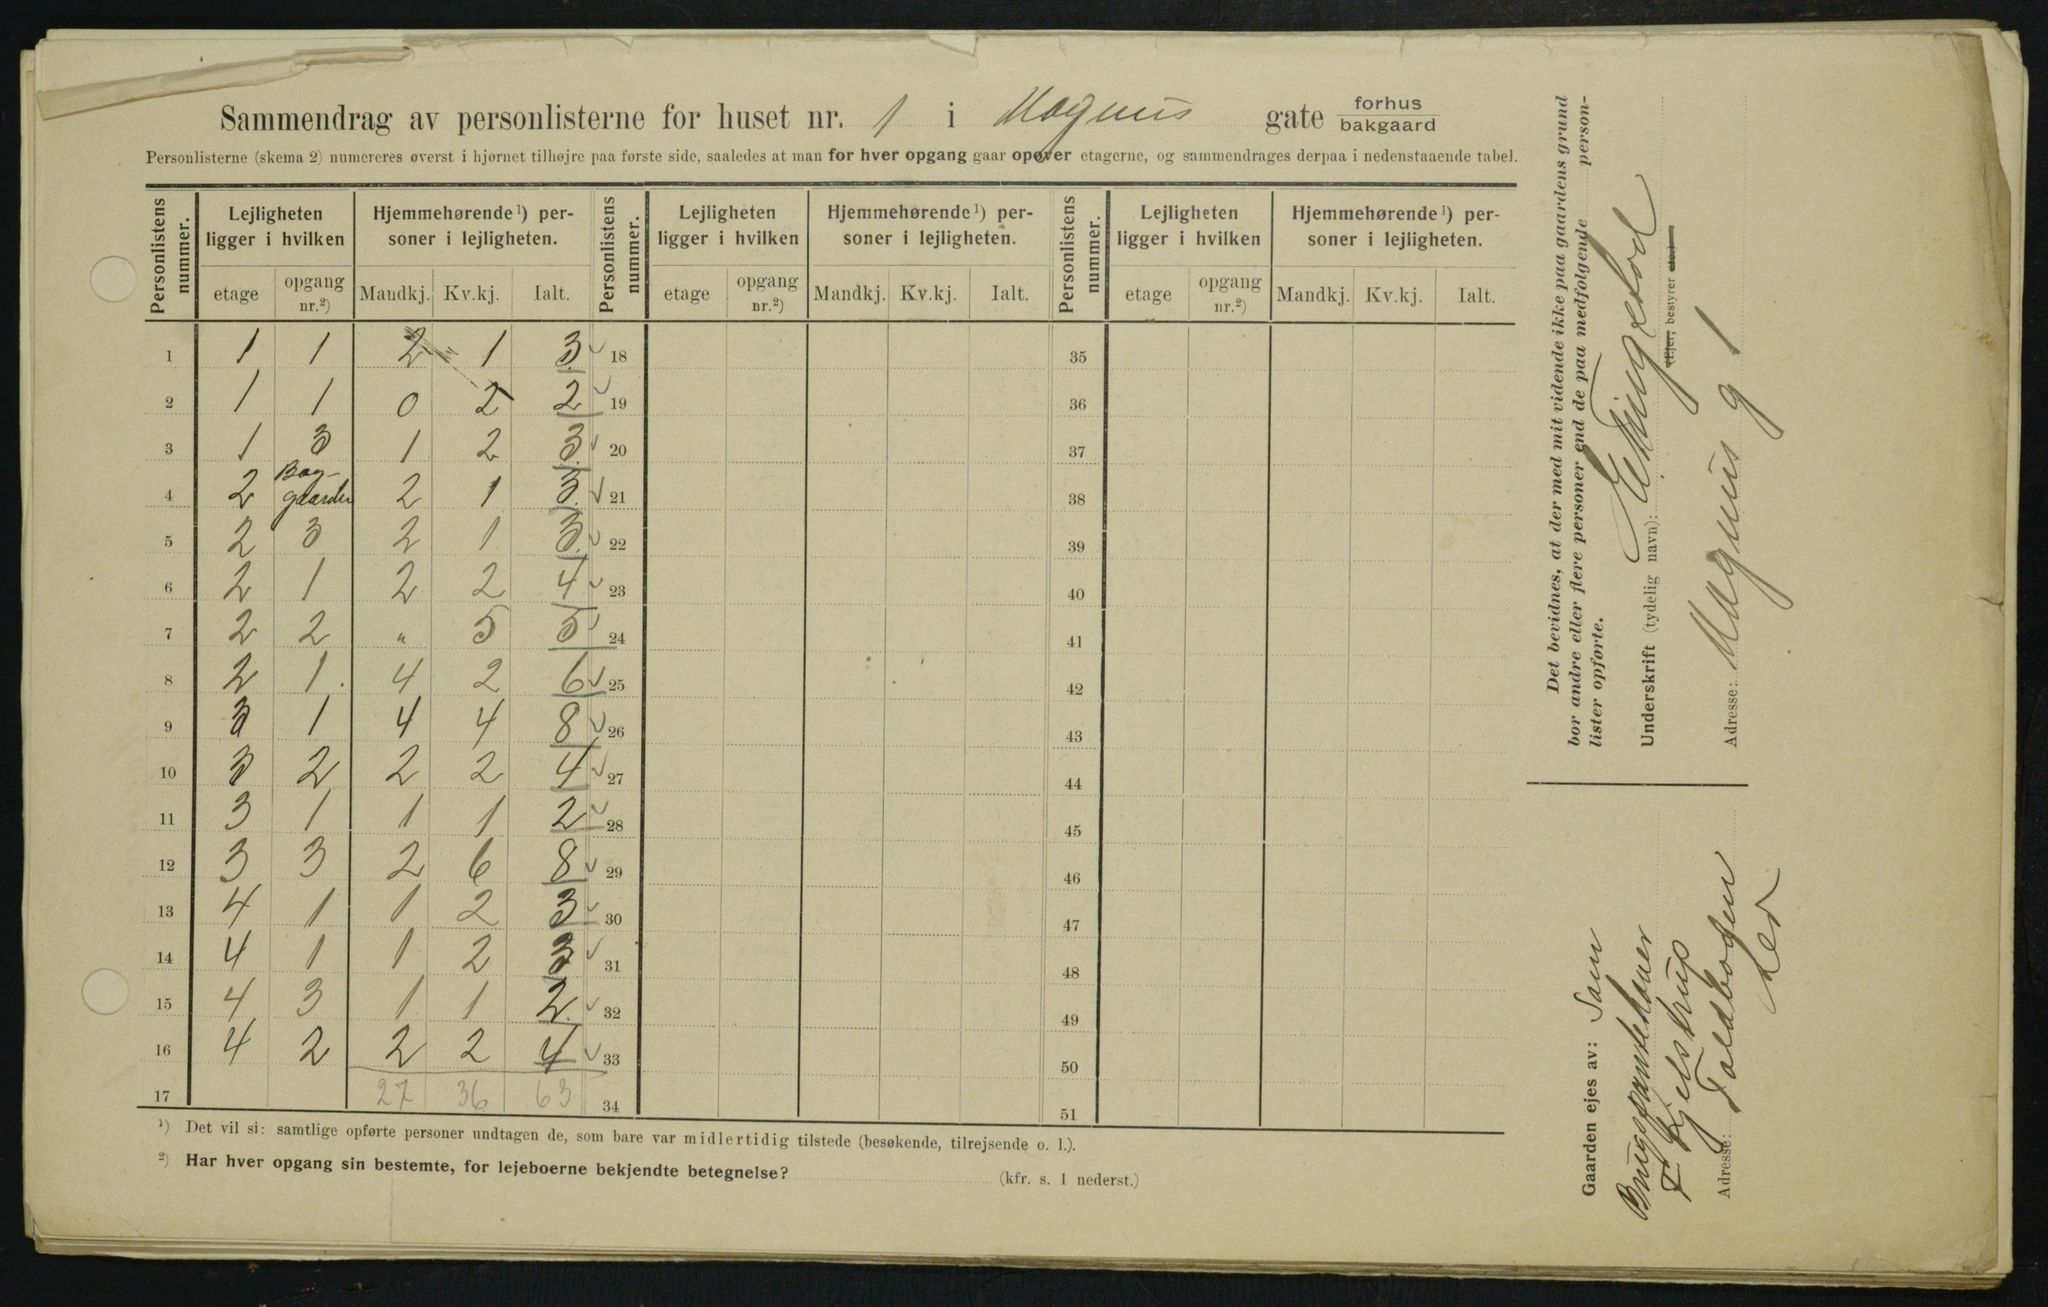 Sammendrag av personlisterne for huset nr. 1 i Magnus gate forhus bakgaard
Personlisterne (skema 2) numereres øverst i hjørnet tilhøjre paa første side, saaledes at man for hver opgang gaar opover etagerne, og sammendrages derpaa i nedenstaaende tabel.
Personlistens nummer. Lejligheten ligger i hvilken Hjemmehørende ¹) personer i lejligheten. Personlistens nummer. Lejligheten ligger i hvilken Hjemmehørende ¹) personer i lejligheten. Personlistens nummer. Lejligheten ligger i hvilken Hjemmehørende ¹) personer i lejligheten.
etage opgang nr.²) Mandkj. Kv.kj. Ialt. etage opgang nr.²) Mandkj. Kv.kj. Ialt. etage opgang nr.²) Mandkj. Kv.kj. Ialt.
1 1 1 2 1 3 18 35
2 1 1 0 2 2 19 36
3 1 3 1 2 3 20 37
4 2 Baggaarden 2 1 3 21 38
5 2 3 2 1 3 22 39
6 2 1 2 2 4 23 40
7 2 2 " 5 5 24 41
8 2 1 4 2 6 25 42
9 3 1 4 4 8 26 43
10 3 2 2 2 4 27 44
11 3 1 1 1 2 28 45
12 3 3 2 6 8 29 46
13 4 1 1 2 3 30 47
14 4 1 1 2 3 31 48
15 4 3 1 1 2 32 49
16 4 2 2 2 4 33 50
17 27 36 63 34 51
¹) Det vil si: samtlige opførte personer undtagen de, som bare var midlertidig tilstede (besøkende, tilrejsende o. l.).
²) Har hver opgang sin bestemte, for lejeboerne bekjendte betegnelse? (kfr. s. 1 nederst.)
Det bevidnes, at der med mit vidende ikke paa gaardens grund
bor andre eller flere personer end de paa medfølgende person-
lister opførte.
Underskrift (tydelig navn):
(Ejer, bestyrer etc.)
Adresse: Magnus g 1
Gaarden ejes av: Som
Brugspantehaver
F Kjelstrup
Adresse: Toldbodgaden